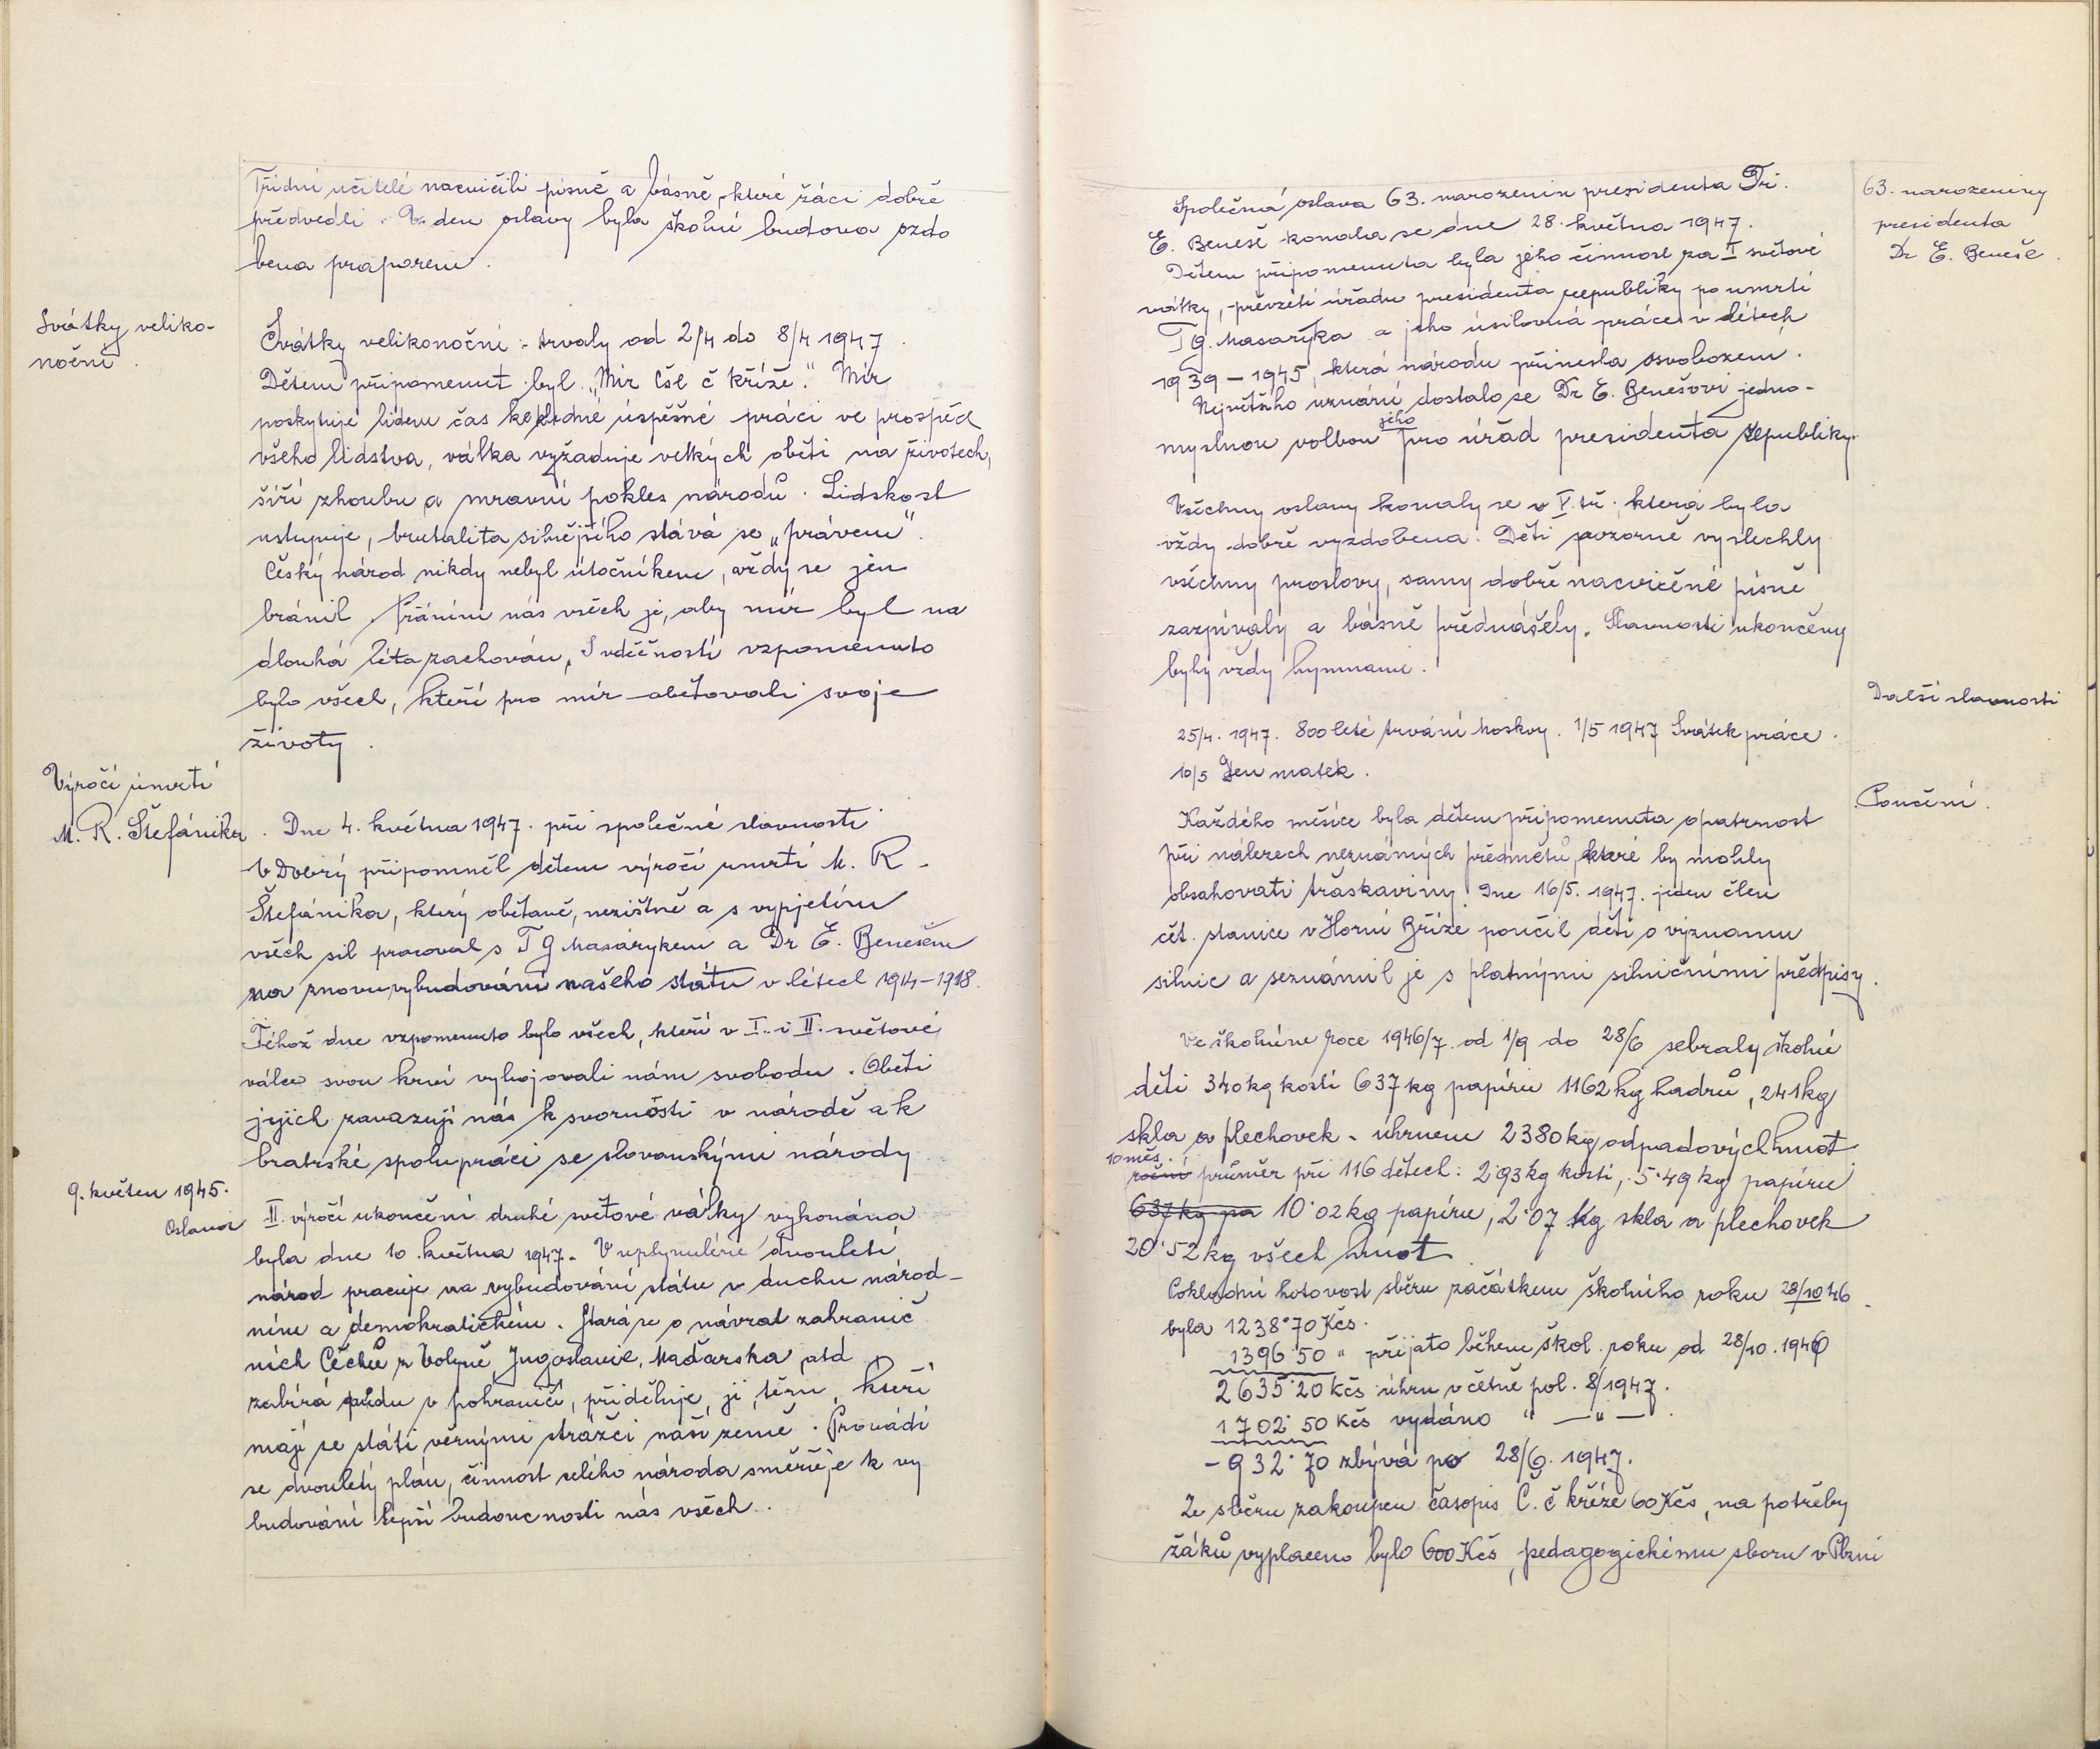 Třídní učitelé nacvičili písně a básně, které žáci dobře
předvedli. V den oslavy byla školní budova ozdo
bena praporem.
Svátky veliko-
noční.
Svátky velikonoční - trvaly od 2/4 do 8/4 1947.
Dětem připomenut byl "Mír Čsl č kříže." Mír
poskytuje lidem čas ke klidné úspěšné práci ve prospěch
všeho lidstva, válka vyžaduje velkých obětí na životech,
šíří zhoubu a mravní pokles národů. Lidskost
ustupuje, brutalita silnějšího stává se "právem".
Český národ nikdy nebyl útočníkem, vždy se jen
bránil. Přáním nás všech je, aby mír byl na
dlouhá léta zachován. S vděčností vzpomenuto
bylo všech, kteří pro mír obětovali svoje
životy.
Výročí úmrtí
M. R. Štefánika.
Dne 4. května 1947. při společné slavnosti
V Dobrý připomněl dětem výročí úmrtí M. R.
Štefánika, který obětavě, nezištně a s vypjetím
všech sil pracoval s T G Masarykem a Dr E. Benešem
na znovuvybudování našeho státu v létech 1914-1918.
Téhož dne vzpomenuto bylo všech, kteří v I. i II. světové
válce svou krví vybojovali nám svobodu. Oběti
jejich zavazují nás k svornosti v národě a k
bratrské spolupráci se slovanskými národy.
9. květen 1945.
Oslava
II. výročí ukončení druhé světové války vykonána
byla dne 10. května 1947. V uplynulém dvouletí
národ pracuje na vybudování státu v duchu národ-
ním a demokratickém. Stará se o návrat zahranič
ních Čechů z Volyně, Jugoslavie, Maďarska atd
zabírá půdu v pohraničí, přiděluje ji těm, kteří
mají se státi věrnými strážci naší země. Provádí
se dvouletý plán, činnost celého národa směřuje k vy
budování lepší budoucnosti nás všech.
Společná oslava 63. narozenin presidenta Dr.
E. Beneše konala se dne 28. května 1947.
63. narozeniny
presidenta
Dr E. Beneše.
Dětem připomenuta byla jeho činnost za I světové
války, převzetí úřadu presidenta republiky po úmrtí
T G. Masaryka a jeho úsilovná práce v létech
1939-1945, která národu přinesla osvobození.
Největšího uznání dostalo se Dr E. Benešovi jedno-
myslnou volbou jeho pro úřad presidenta republiky.
Všechny oslavy konaly se v V. tř. která byla
vždy dobře vyzdobena. Děti pozorně vyslechly
všechny proslovy, samy dobře nacvičené písně
zazpívaly a básně přednášely. Slavnosti ukončeny
byly vždy hymnami.
Další slavnosti
25/4. 1947. 800 leté trvání Moskvy. 1/5 1947 Svátek práce.
10/5 Den matek.
Poučení.
Každého měsíce byla dětem připomenuta opatrnost
při nálezech neznámých předmětů, které by mohly
obsahovati třaskaviny. Dne 16/5. 1947. jeden člen
čet. stanice v Horní Bříze poučil děti o významu
silnic a seznámil je s platnými silničními předpisy.
Ve školním roce 1946/7. od 1/9 do 28/6 sebraly školní
děti 340 kg kostí 637 kg papíru 1162 kg hadrů, 241 kg
skla a plechovek - úhrnem 2380 kg odpadových hmot
10 měs.
roční průměr při 116 dětech: 2˙93 kg kostí, 5˙49 kg papíru
637 kg pa 10˙02 kg papíru, 2˙07 kg skla a plechovek
20˙52 kg všech hmot.
Pokladní hotovost sběru začátkem školního roku 28/10 46
byla 1238˙70 Kčs.
1396˙50 " přijato během škol. roku od 28/10. 1946
2635˙20 Kčs úhrn včetně pol. 8/1947.
1702˙50 Kčs vydáno " — " — .
- 932˙70 zbývá po 28/6. 1947.
Ze sběru zakoupen časopis Č. č kříže 60 Kčs, na potřeby
žáků vyplaceno bylo 600 Kčs, pedagogickému sboru v Plzni